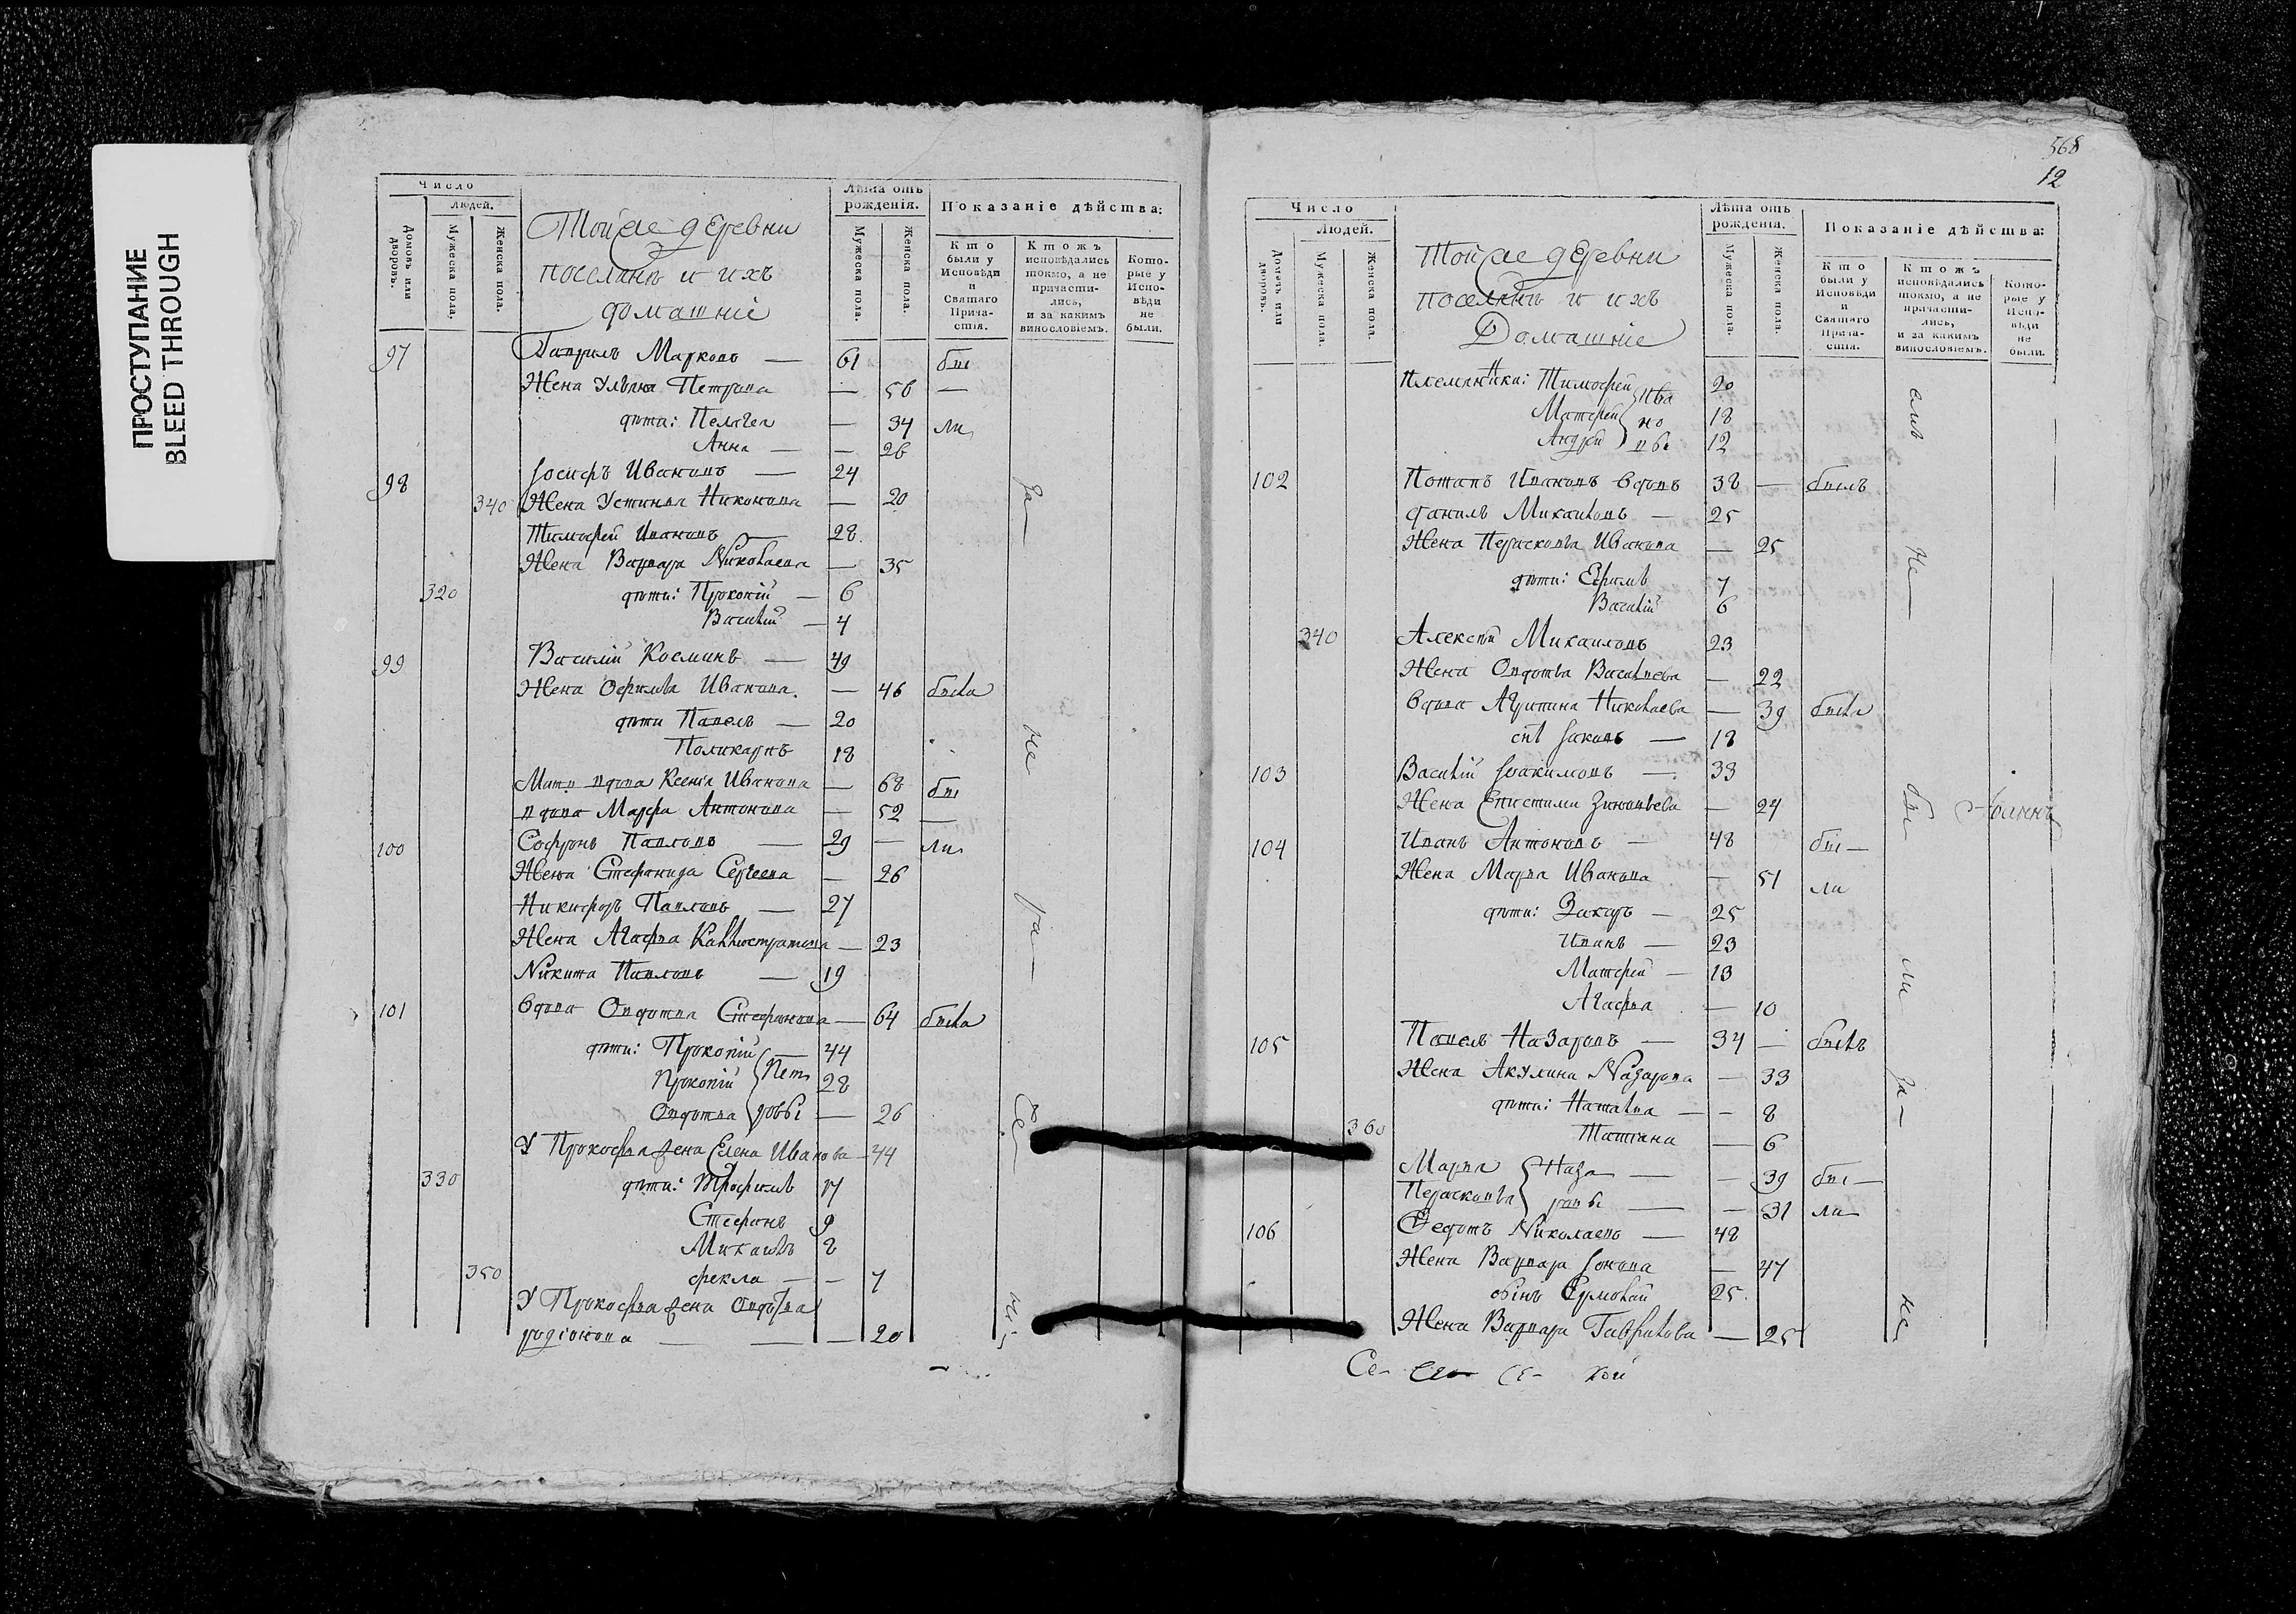 ПРОСТУПАНИЕ
BLEED THROUGH
Число
Людей.
Домовъ или дворовъ.
Мужеска пола.
Женска пола.
Тойже деревни
поселянъ и ихъ
домашніе
Лѣта отъ рожденія.
Мужеска пола.
Женска пола.
Показаніе дѣйства:
Кто были у Исповѣди и Святаго Прича-стія.
Ктожъ исповѣдались токмо, а не причасти-лись, и за какимъ винословіемъ.
Кото-рые у Испо-вѣди не были.
97 Гаврилъ Марковъ — 61 бы
Жена Ульяна Петрова — 56 —
дѣти: Пелагея — 34 ли
Анна — — 26
98 Іосифъ Ивановъ — 24
340 Жена Устинья Никонова — 20
Тимофей Ивановъ 28.
Жена Варвара Николаева — 35
320 дѣти: Прокопій — 6
Василій — 4
99 Василій Косминъ — 49
Жена Офимья Иванова. — 46 была
дѣти Павелъ — 20
Поликарпъ 18
Мать вдова Ксенія Иванова — 68 бы
вдова Марфа Антонова — 52 —
100 Софронъ Павловъ — 29 — ли
Жена Стефанида Сергеева — 26
Никифоръ Павловъ — 27
Жена Агафья Каллистратова — 23
Никита Павловъ — 19
101 Вдова Овдотья Стефанова — 64 была
дѣти: Прокопій — 44
Прокопій Пет 28
Овдотья ровы — 26
У Прокофья жена Елена Иванова — 44
330 дѣти: Трофимъ 17
Стефанъ 9
Михаилъ 8
350 фекла — — 7
У Прокофья жена Овдотья
родіонова — — — 20
За
не
ра
се
568
12
Число
Людей.
Домовъ или дворовъ.
Мужеска пола.
Женска пола.
Тойже деревни
поселянъ и ихъ
Домашніе
Лѣта отъ рожденія.
Мужеска пола.
Женска пола.
Показаніе дѣйства:
Кто были у Исповѣди и Святаго Прича-стія.
Ктожъ исповѣдались токмо, а не причасти-лись, и за какимъ винословіемъ.
Кото-рые у Испо-вѣди не были.
Племянники: Тимофей Ива 20
Матфей но 18
Андрей вы 12
102 Потапъ Ивановъ вдовъ 38 — былъ
данилъ Михаиловъ — 25
Жена Перасковья Иванова — 25
дѣти: Ефимъ 7
Василій 6
340 Алексѣй Михаиловъ 23
Жена Овдотья Васильева — 22
Вдова Агрипина Николаева — 39 была
сынъ Іаковъ — 18
103 Василій Іоакимовъ — 33
Жена Епистимия Зиновьева — 24
104 Иванъ Антоновъ — 48 бы —
Жена Марья Иванова — 51 ли
дѣти: Захаръ — 25
Иванъ — 23
Матфей — 13
Агафья — 10
105 Павелъ Назаровъ — 34 — былъ
Жена Акулина Назарова — 33
дѣти: Наталья — — 8
360 Татіана — 6
Марья Наза — — 39 бы —
Перасковья ровы — — 31 ли
106 Федотъ Николаевъ — 48
Жена Варвара Іонова — 47
сынъ Ермолай 25.
Жена Варвара Гаврилова — 25
не
бы
Іоаннъ
ли
за
не
Се- Се- кой